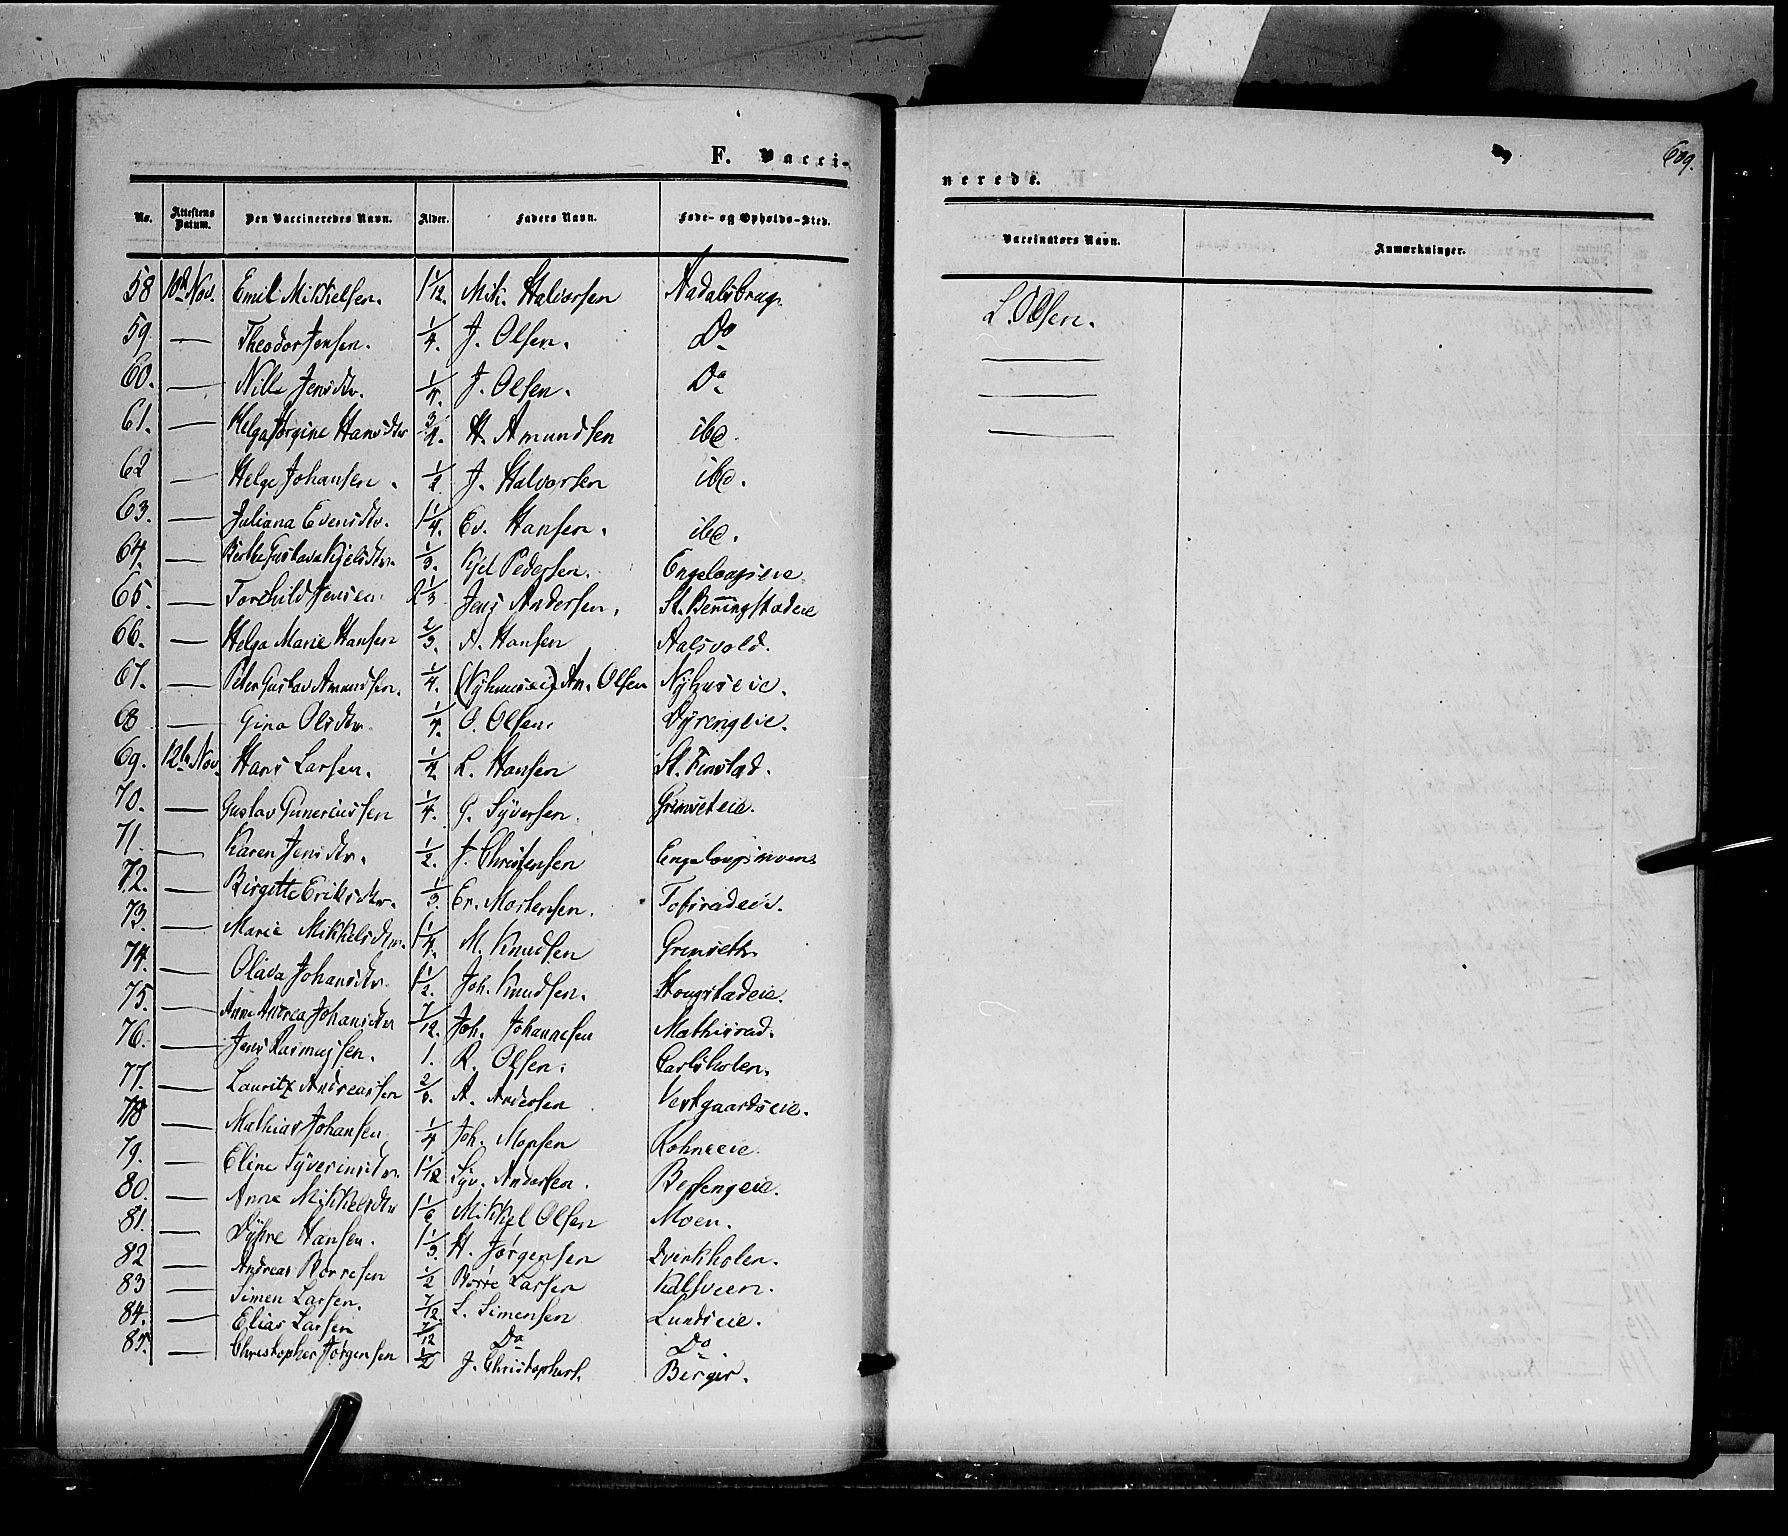 609.
F. Vacci-
nerede.
No. Attestens Datum. Den Vaccineredes Navn. Alder. Faders Navn. Føde- og Opholds-Sted. Vaccinators Navn. Anmærkninger.
58 10de Nov. Emil Mikkelsen. 1 1/12. Mik. Halvorsen Aadalsbrug. L. Olsen.
59. — Theodor Jensen. 1/4. J. Olsen. Do —
60. — Nille Jensdtr. 1/4. J. Olsen. Do —
61. — Helga Jørgine Hansdtr 3/4. H. Amundsen ibd. —
62 — Helge Johansen. 1/2 J. Halvorsen ibd.
63. — Juliana Evensdtr. 1 1/4. Ev. Hansen. ibd.
64. — Berthe Gustava Kjelsdtr. 1/3. Kjel Pedersen.
65. — Torchild Jensen 2 1/3 Jens Andersen. St. Benningstadeie
66. — Helga Marie Hansen 2/3. A. Hansen Aalsvold.
67. — Peter Gustav Amundsen. 1/4. (Nyhuuseie) Am. Olsen Nyhuseie.
68 — Gina Olsdtr. 1/4. O. Olsen. Dyrengeie.
69. 12te Nov. Hans Larsen. 1/2 L. Hansen St. Finstad.
70. — Gustav Guneriussen 1/4. G. Syversen. Grimseteie.
71. — Karen Jensdtr. 1/2. J. Christensen
72. — Birgitte Eriksdtr. 1/3. Er. Mortensen. Tofsradeie.
73. — Marie Mikkelsdtr. 1 1/4. M. Knudsen Grimseth
74. — Olava Johansdtr. 1 1/2. Joh. Knudsen. Hougstadeie.
75. — Anne Andrea Johansdtr 7/12. Joh. Johannesen Mathisrud.
76. — Jens Rasmussen. 1. R. Olsen. Carlsholen.
77. — Lauritz Andreassen 2/3. A. Andersen Vestgaardseie.
78 — Mathias Johansen 1/4 Joh. Monsen Rohneeie.
79. — Eline Syverinsdtr. 1 1/12 Syv. Andersen. Bersengeie.
80. — Anne Mikkelsdtr 1 1/6 Mikkel Olsen Moen.
81. — Dyhre Hansen. 1 1/3. H. Jørgensen Dverkholen.
82 — Andreas Børresen 1/2 Børre Larsen Kalsveen.
83 — Simen Larsen. 7/12. L. Simensen Lundseie.
84. — Elias Larsen 7/12 Do Do.
85. — Christopher Jørgensen 1/2 J. Christophers. Berger.